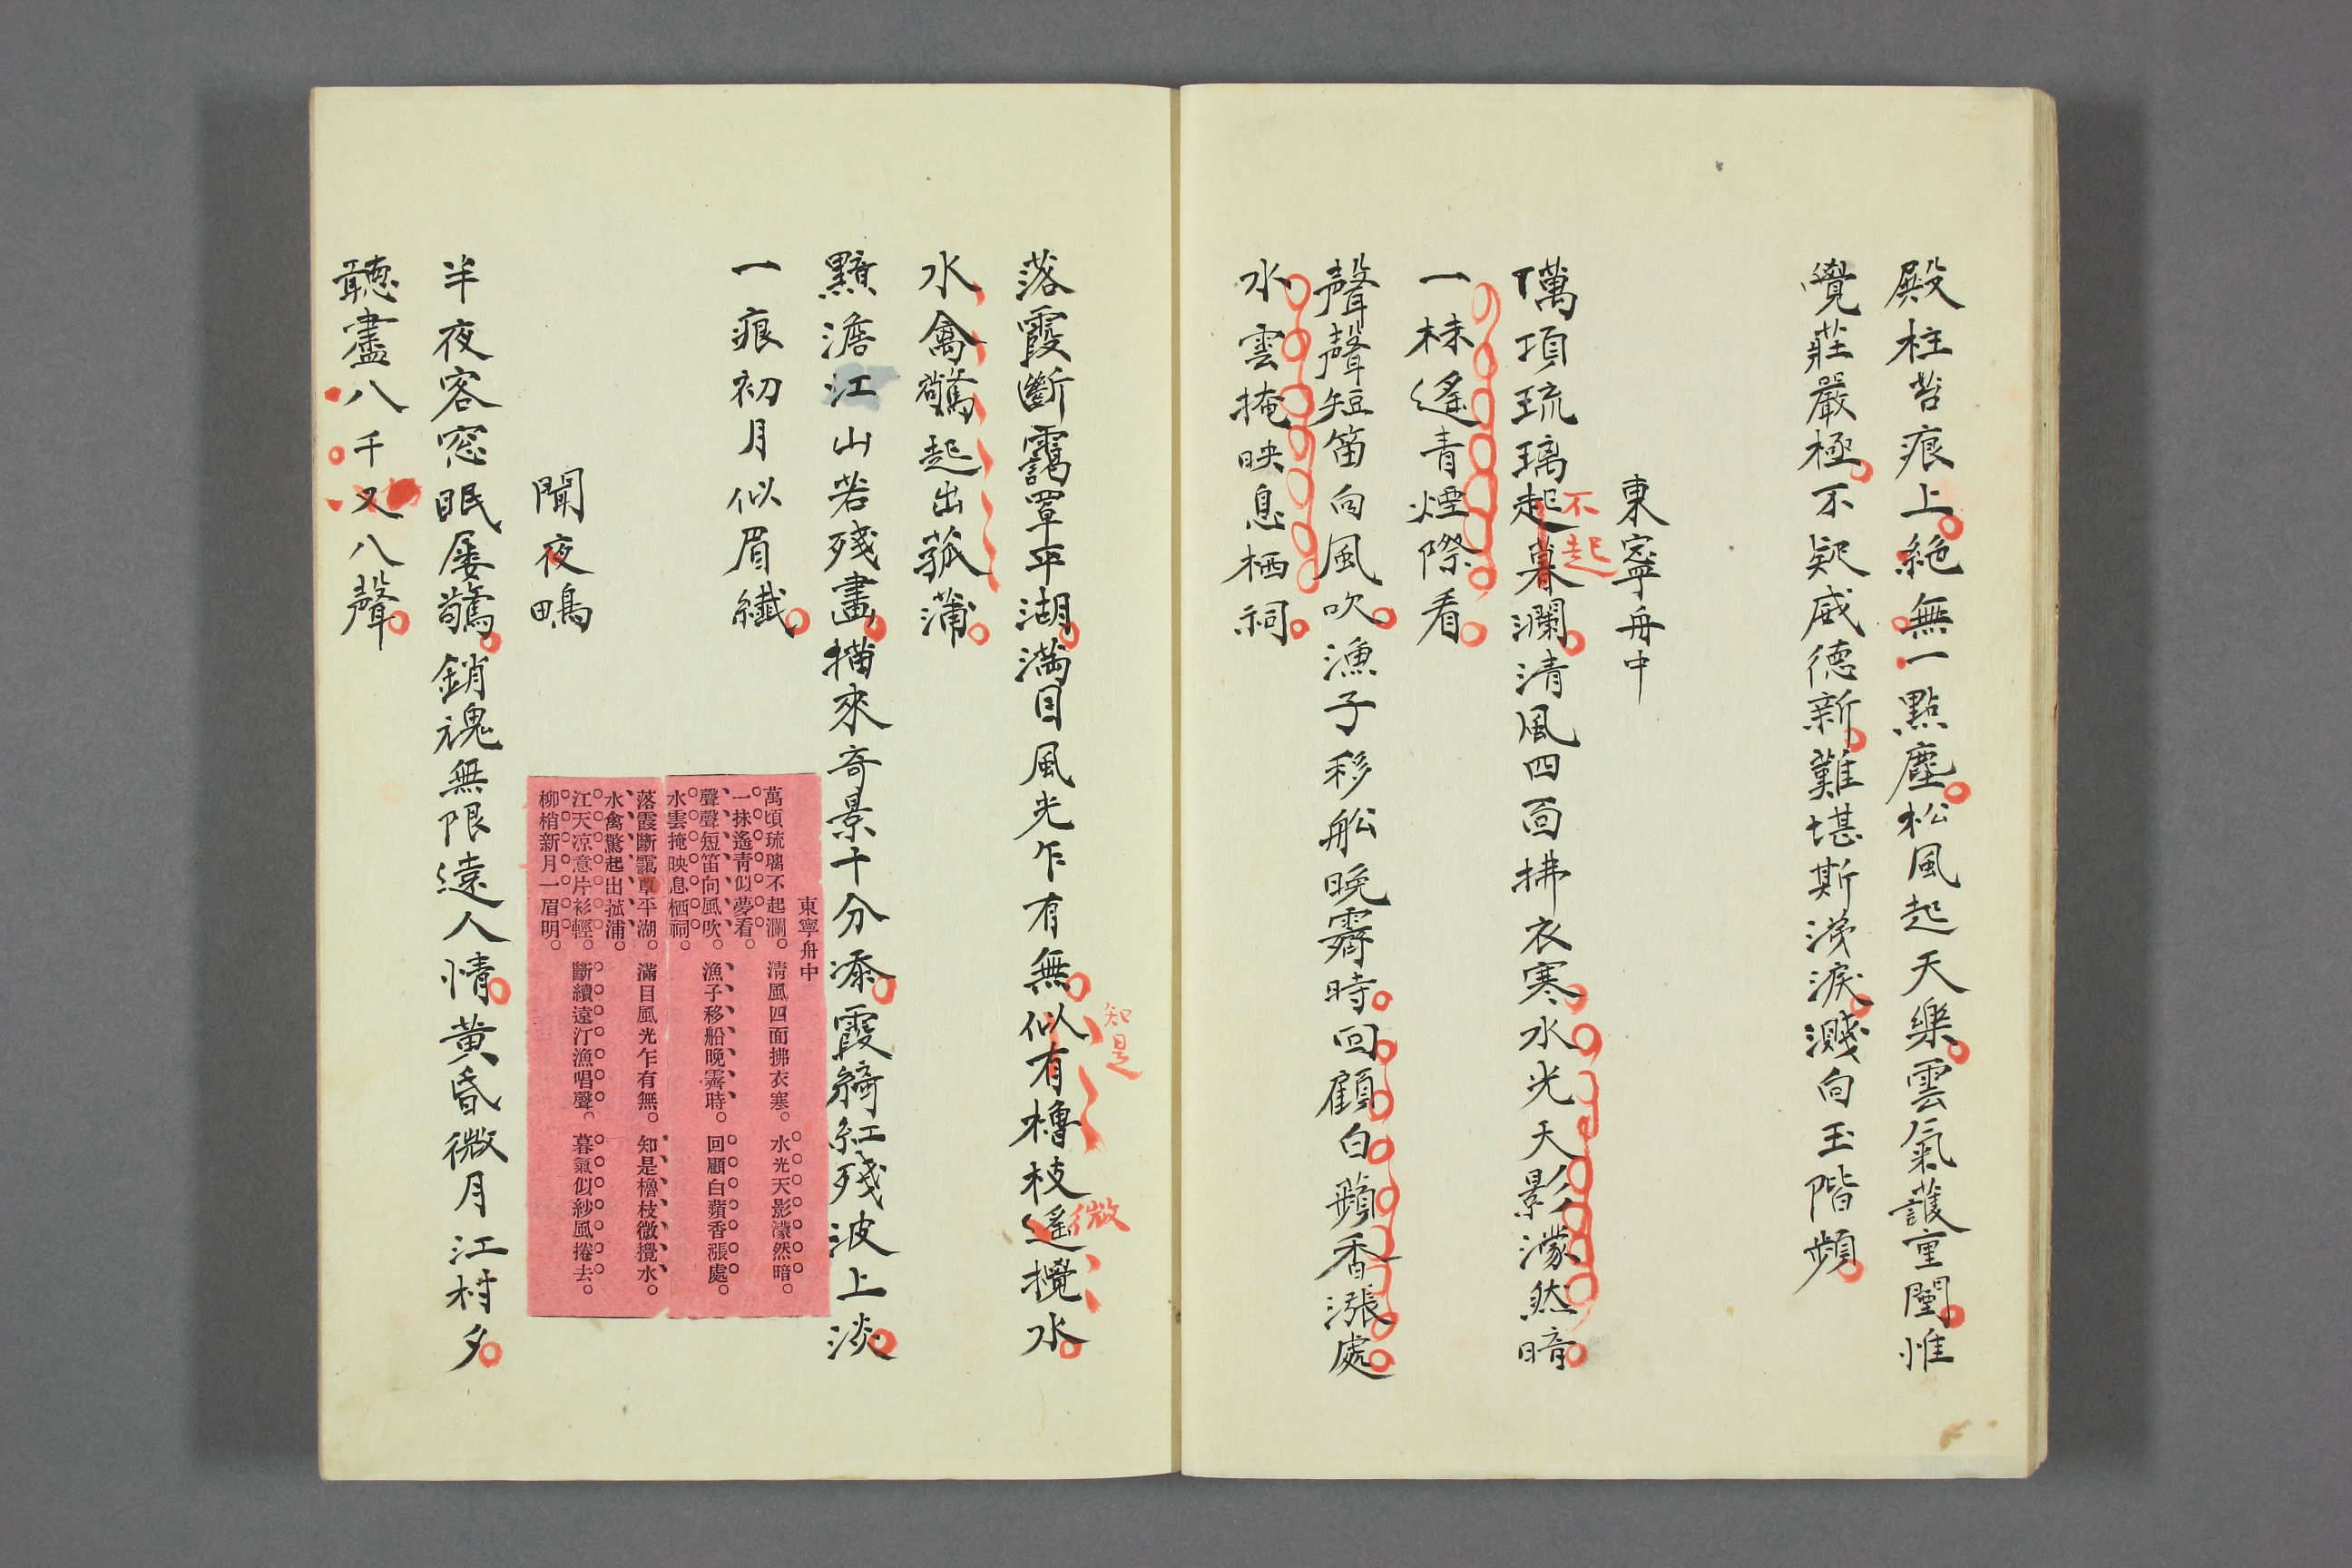 殿柱苔痕上。絶無一點塵。松風起天樂。雲氣護重闉。惟
覺莊嚴極。不疑威德新。難堪斯涕淚。濺向玉階頻。
東寧舟中
萬項琉璃起暮瀾。清風四面拂衣寒。水光天影濛然暗。
不起
一抹遙青煙際看。
聲聲短笛向風吹。漁子移舩晚霽時。回顧白蘋香漲處。
水雲掩映息栖祠。
落霞斷靄罩平湖。滿目風光乍有無。似有櫓枝遥攪水。
知是
微
水禽驚起出菰蒲。
黯澹江山若殘畫。描來奇景十分添。霞綺紅殘波上淡。
一痕初月似眉纖。
東寧舟中
萬頃琉璃不起瀾。清風四面拂衣寒。水光天影濛然暗。
一抹遙青似夢看。
聲聲短笛向風吹。漁子移船晚霽時。回顧白蘋香漲處。
水雲掩映息栖祠。
落霞斷靄罩平湖。滿目風光乍有無。知是櫓枝微攪水。
水禽驚起出菰浦。
江天凉意片衫輕。斷續遠汀漁唱聲。暮氣似紗風捲去。
柳梢新月一眉明。
聞夜鴫
半夜客窓眠屡驚。銷魂無限遠人情。黄昏微月江村夕。
聽盡八千又八聲。